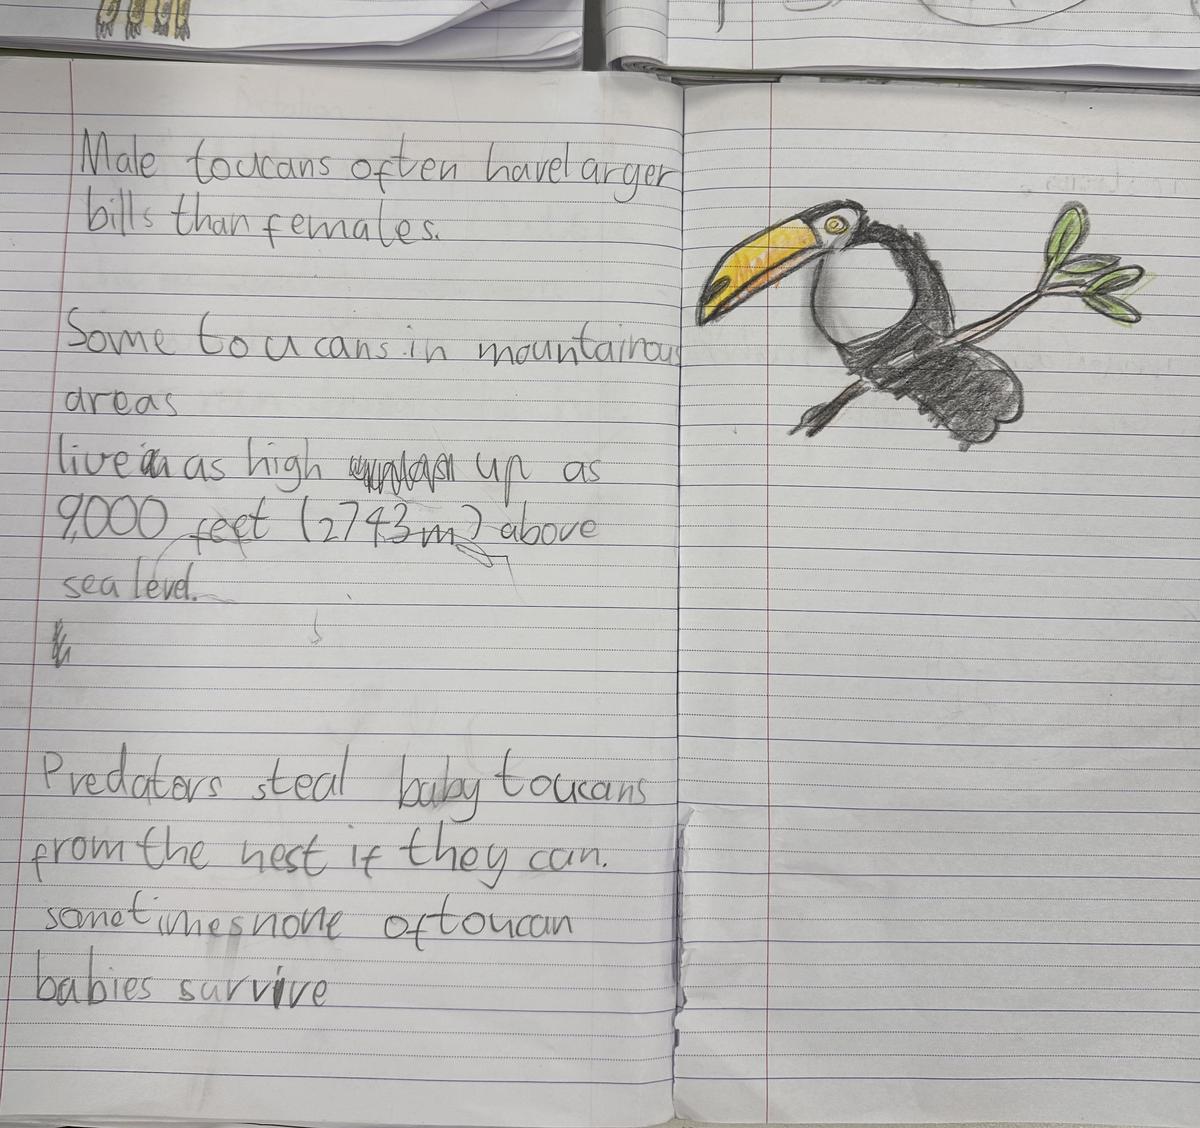 Male toucans often have larger
bills than females.
Some toucans in mountainous
areas
live as high up as
9,000 feet (2743m) above
sea level.
Predators steal baby toucans
from the nest if they can.
sometimes none of toucan
babies survive